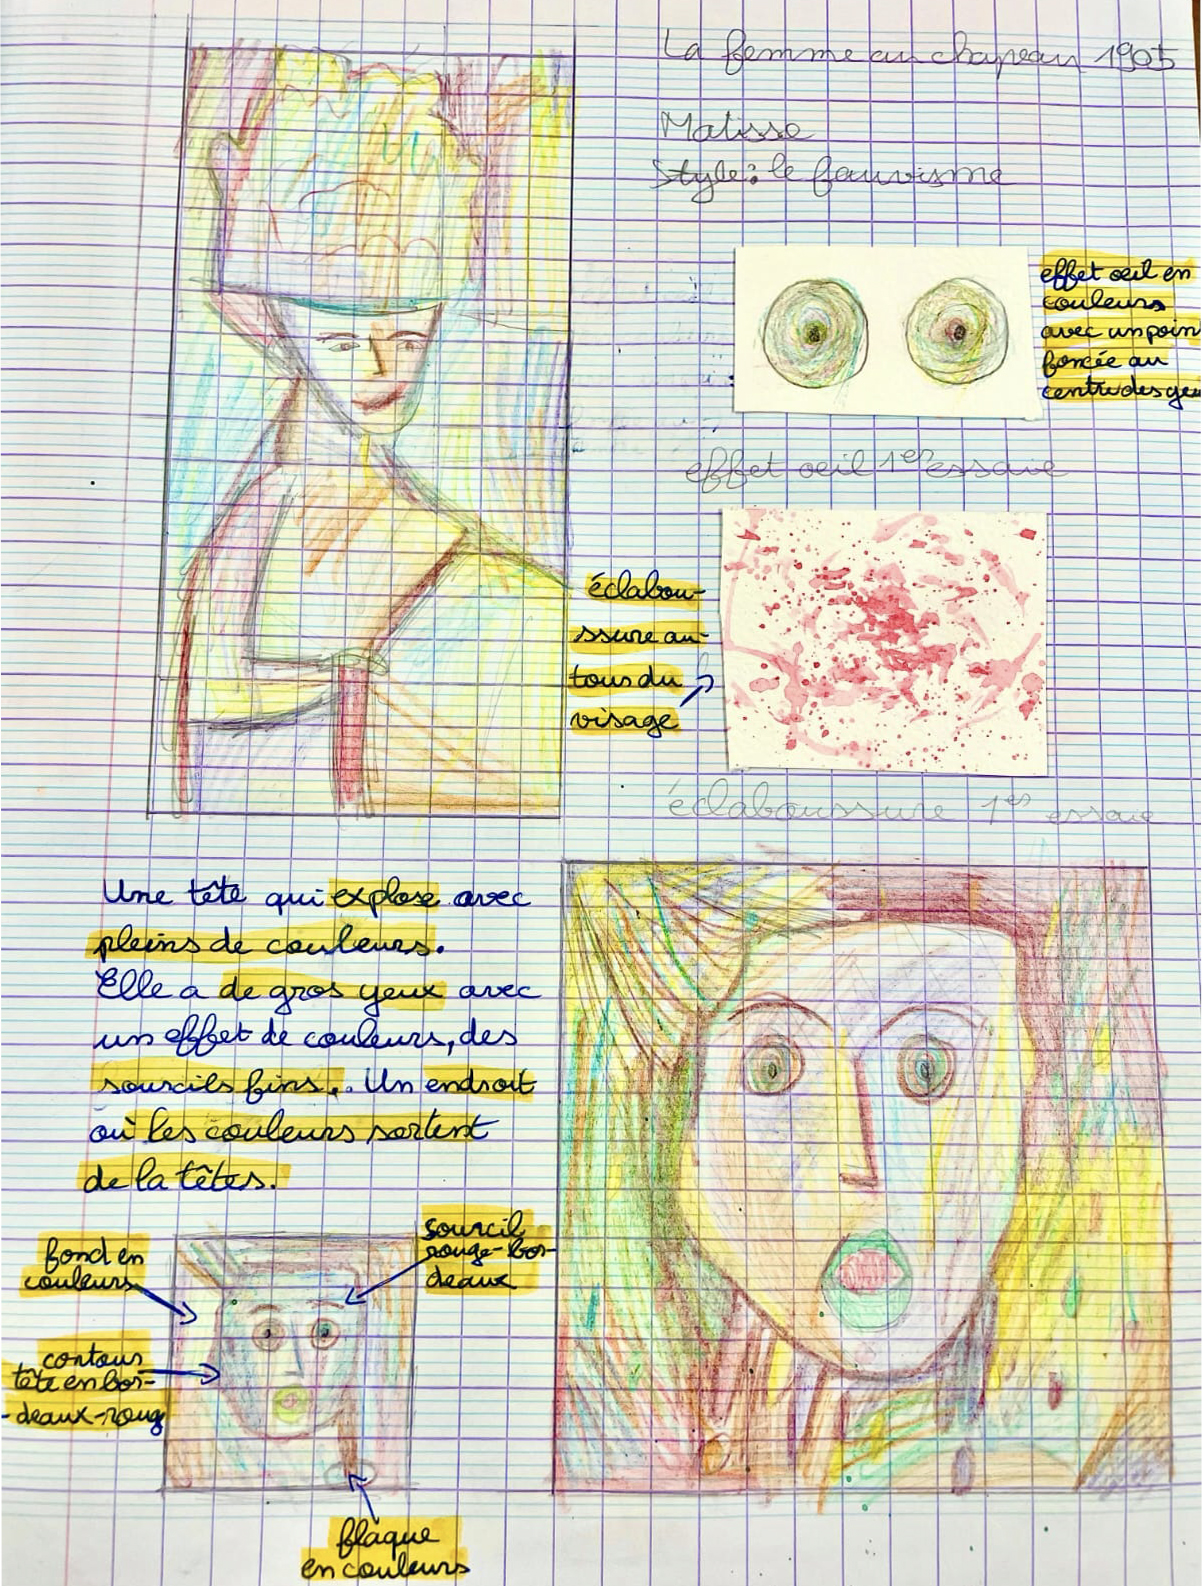 La femme au chapeau 1905
Matisse
Style : le fauvisme
effet oeil en
couleurs
avec un poin
foncée au
centre des yeu
effet oeil 1er essaie
éclabou-
ssure au-
tour du
visage
éclaboussure 1er essaie
Une tête qui explose avec
pleins de couleurs.
Elle a de gros yeux avec
un effet de couleurs, des
sourcils fins.. Un endroit
où les couleurs sortent
de la têtes.
fond en
couleurs
sourcil
rouge-bor-
deaux
contour
tête en bor-
-deaux-roug
flaque
en couleurs